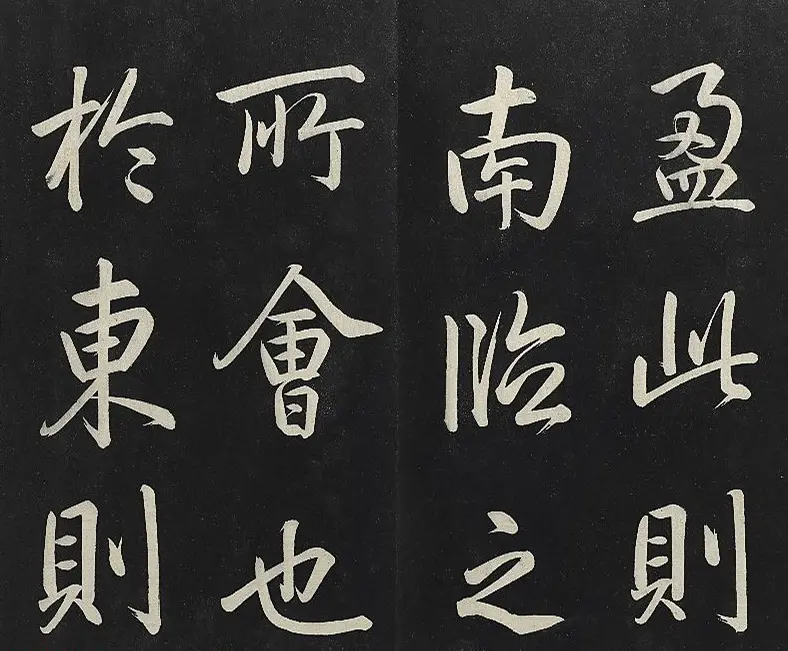 盈此則
南临之
所會也
於東則